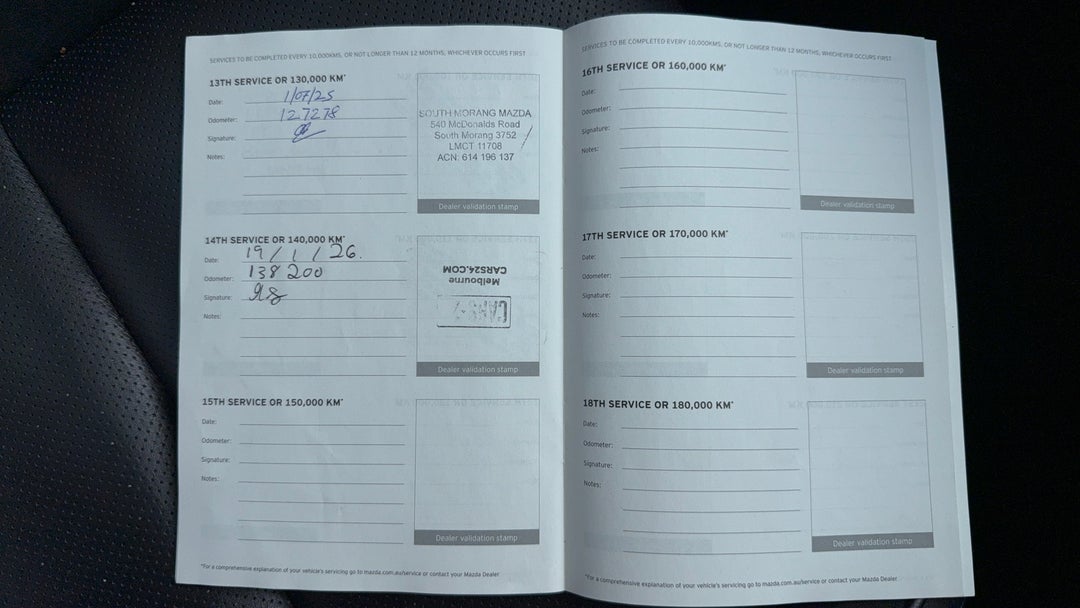 SERVICES TO BE COMPLETED EVERY 10,000KMS, OR NOT LONGER THAN 12 MONTHS, WHICHEVER OCCURS FIRST
13TH SERVICE OR 130,000 KM*
Date: 1/07/25
Odometer: 127278
Signature:
Notes:
SOUTH MORANG MAZDA
540 McDonalds Road
South Morang 3752
LMCT 11708
ACN: 614 196 137
Dealer validation stamp
14TH SERVICE OR 140,000 KM*
Date: 19/1/26.
Odometer: 138200
Signature:
Notes:
CARS24
Melbourne
CARS24.COM
Dealer validation stamp
15TH SERVICE OR 150,000 KM*
Date:
Odometer:
Signature:
Notes:
Dealer validation stamp
*For a comprehensive explanation of your vehicle's servicing go to mazda.com.au/service or contact your Mazda Dealer
SERVICES TO BE COMPLETED EVERY 10,000KMS, OR NOT LONGER THAN 12 MONTHS, WHICHEVER OCCURS FIRST
16TH SERVICE OR 160,000 KM*
Date:
Odometer:
Signature:
Notes:
Dealer validation stamp
17TH SERVICE OR 170,000 KM*
Date:
Odometer:
Signature:
Notes:
Dealer validation stamp
18TH SERVICE OR 180,000 KM*
Date:
Odometer:
Signature:
Notes:
Dealer validation stamp
*For a comprehensive explanation of your vehicle's servicing go to mazda.com.au/service or contact your Mazda Dealer